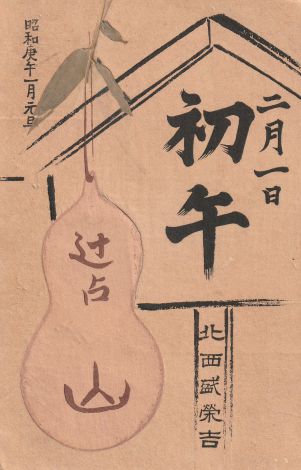 二月一日
初午
北西盛榮吉
昭和庚午一月元旦
辻占
山